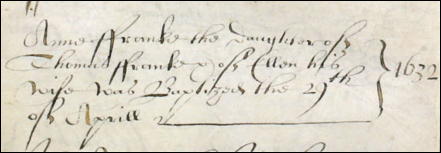 Anne ffranke the Daughter of
Thomas ffranke & of Ellen his
wife was Baptized the 29th 1632
of Aprill